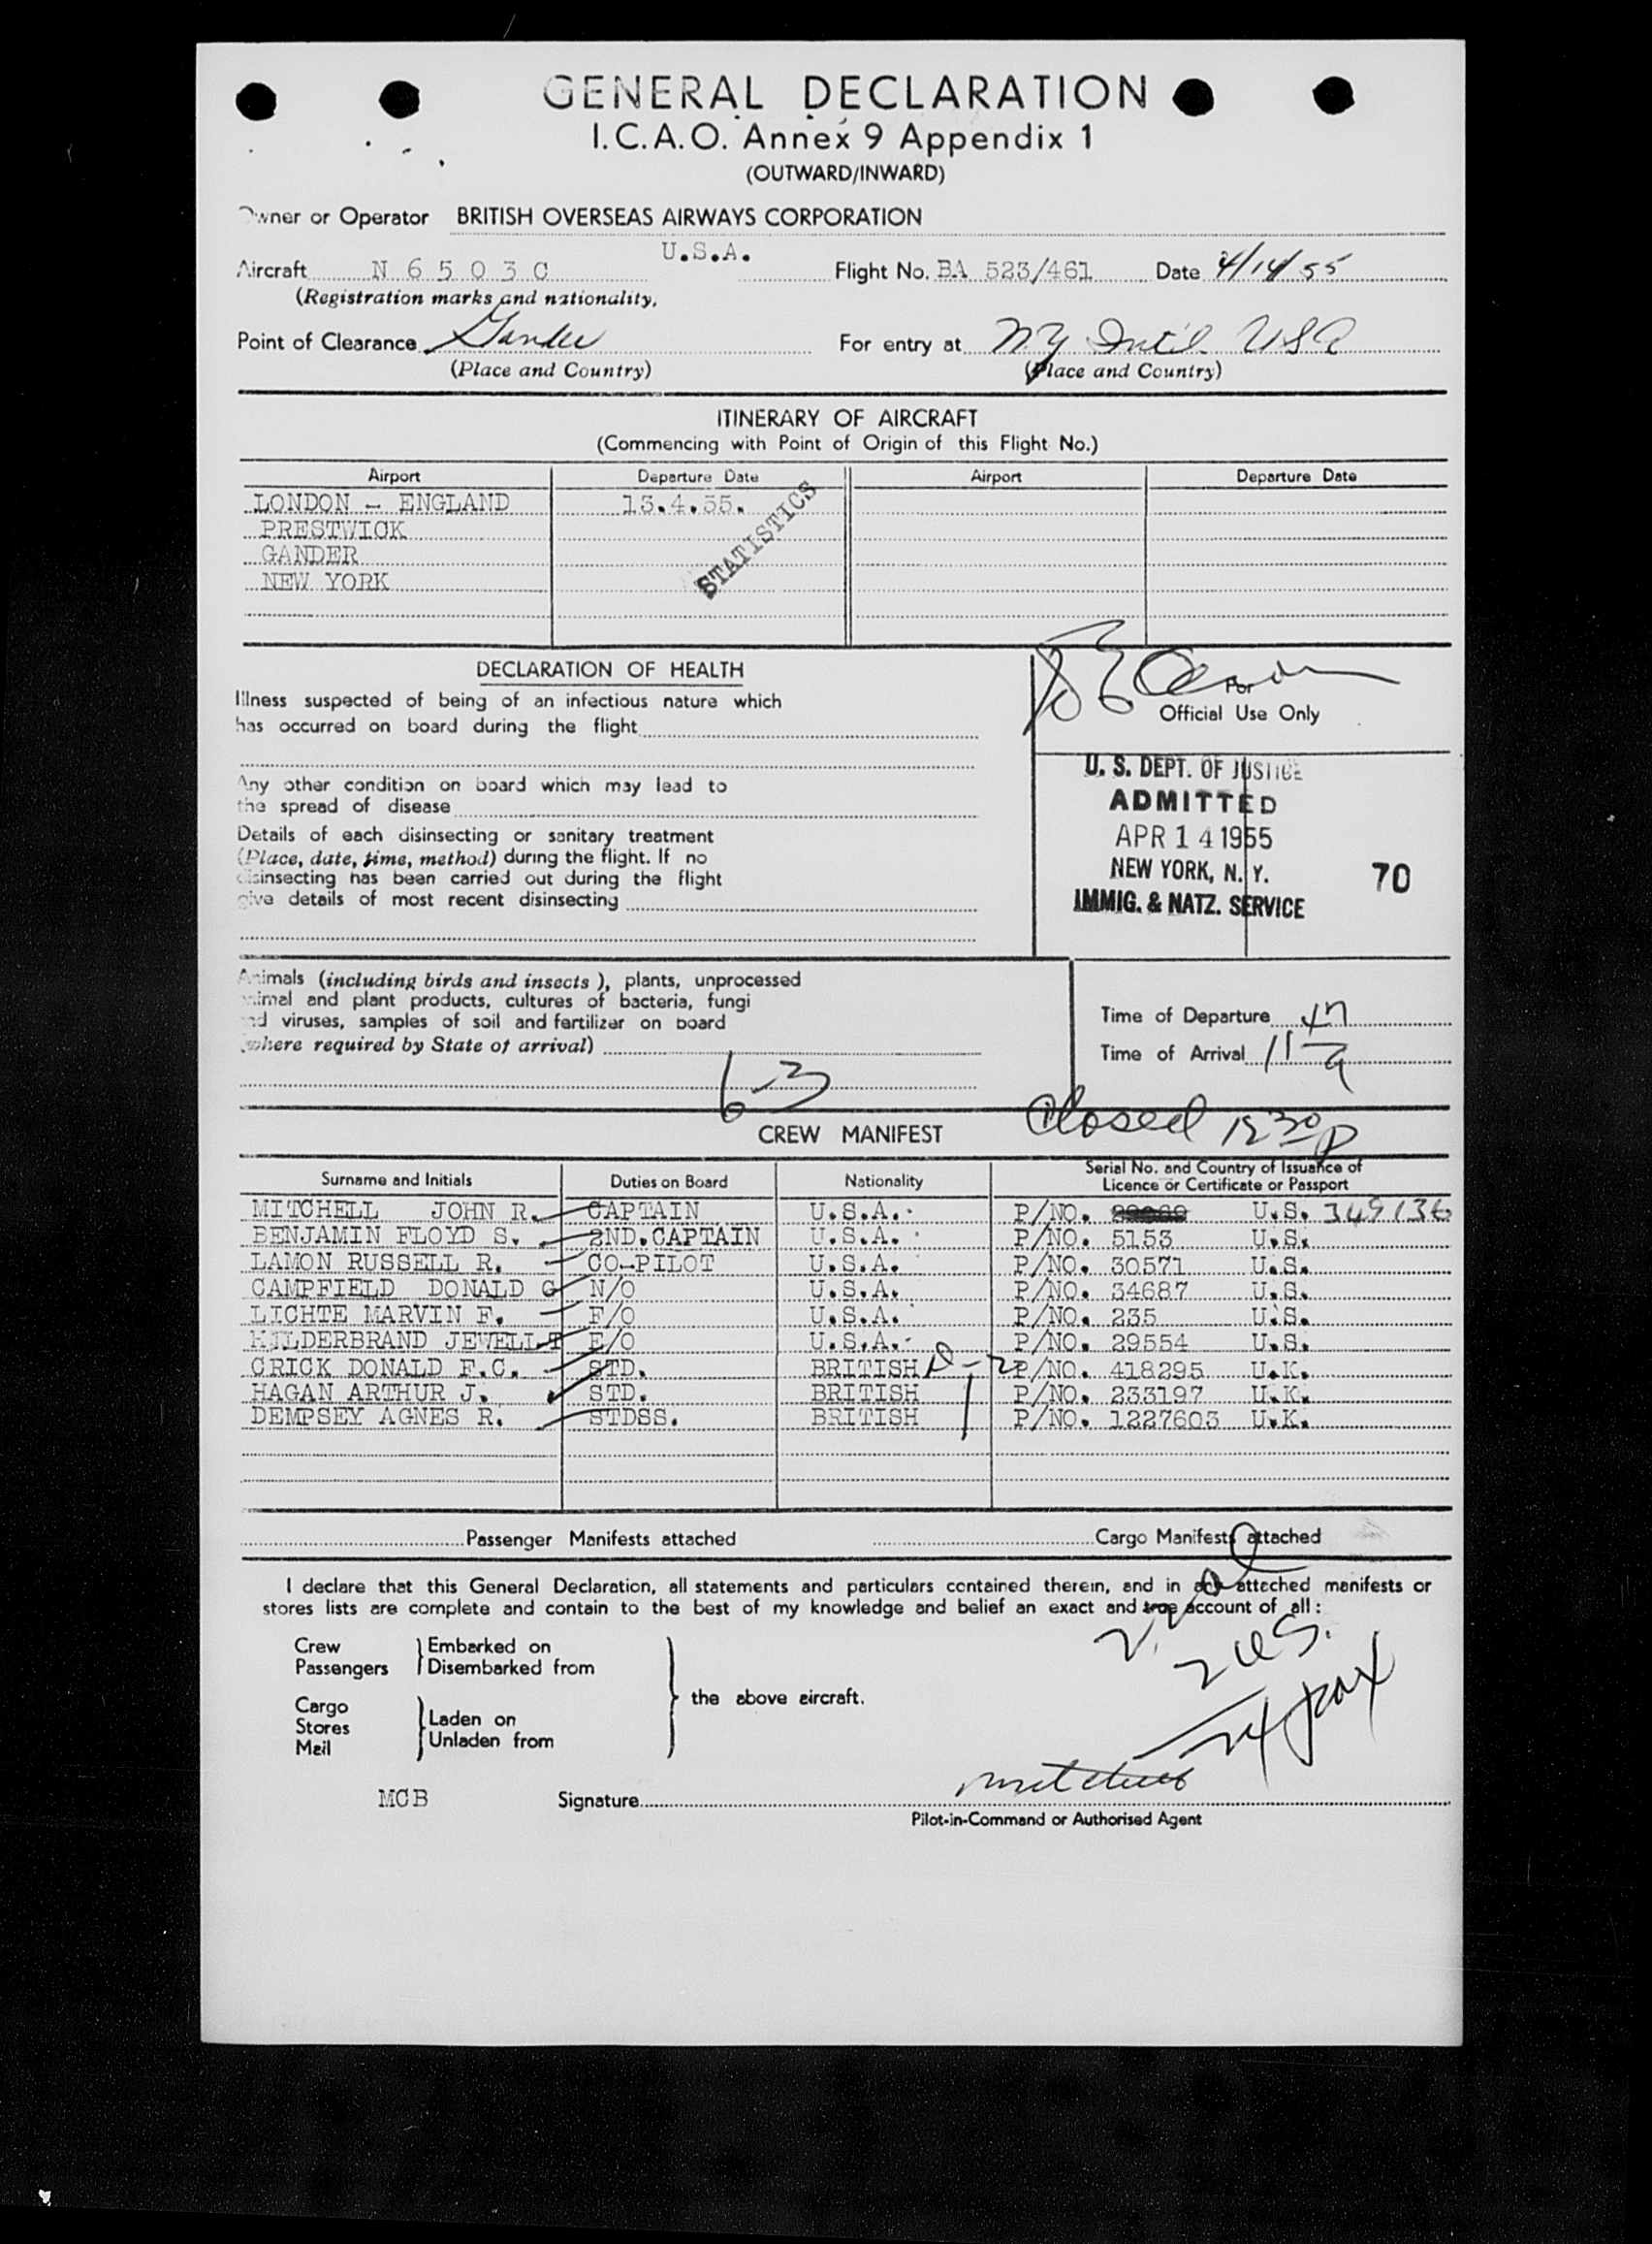 GENERAL DECLARATION
I.C.A.O. Annex 9 Appendix 1
(OUTWARD/INWARD)
Owner or Operator BRITISH OVERSEAS AIRWAYS CORPORATION
U.S.A.
Aircraft N 6 5 0 3 C Flight No. BA 523/461 Date 4/14/55
(Registration marks and nationality,
Point of Clearance Gander For entry at NY Int'l USA
(Place and Country) (Place and Country)
ITINERARY OF AIRCRAFT
(Commencing with Point of Origin of this Flight No.)
Airport Departure Date Airport Departure Date
LONDON - ENGLAND 13.4.55.
PRESTWICK
GANDER
NEW YORK
STATISTICS
DECLARATION OF HEALTH
Illness suspected of being of an infectious nature which
has occurred on board during the flight
For
Official Use Only
Any other condition on board which may lead to
the spread of disease
Details of each disinsecting or sanitary treatment
(Place, date, time, method) during the flight. If no
disinsecting has been carried out during the flight
give details of most recent disinsecting
U. S. DEPT. OF JUSTICE
ADMITTED
APR 14 1955
NEW YORK, N. Y. 70
IMMIG. & NATZ. SERVICE
Animals (including birds and insects ), plants, unprocessed
animal and plant products, cultures of bacteria, fungi
and viruses, samples of soil and fertilizer on board
(where required by State of arrival)
Time of Departure
Time of Arrival 11
6-3
Closed 12 30 p
CREW MANIFEST
Surname and Initials Duties on Board Nationality Serial No. and Country of Issuance of
Licence or Certificate or Passport
MITCHELL JOHN R. CAPTAIN U.S.A. P/NO. U.S. 349136
BENJAMIN FLOYD S. 2ND.CAPTAIN U.S.A. P/NO. 5153 U.S.
LAMON RUSSELL R. CO-PILOT U.S.A. P/NO. 30571 U.S.
CAMPFIELD DONALD G N/O U.S.A. P/NO. 34687 U.S.
LICHTE MARVIN F. F/O U.S.A. P/NO. 235 U.S.
HILDERBRAND JEWELL T E/O U.S.A. P/NO. 29554 U.S.
CRICK DONALD F.C. STD. BRITISH D-2 P/NO. 418295 U.K.
HAGAN ARTHUR J. STD. BRITISH P/NO. 233197 U.K.
DEMPSEY AGNES R. STDSS. BRITISH P/NO. 1227603 U.K.
Passenger Manifests attached Cargo Manifests attached
I declare that this General Declaration, all statements and particulars contained therein, and in any attached manifests or
stores lists are complete and contain to the best of my knowledge and belief an exact and true account of all :
Crew Embarked on
Passengers Disembarked from
the above aircraft.
Cargo
Stores Laden on
Mail Unladen from
2 US.
24 pax
MCB Signature Mitchell
Pilot-in-Command or Authorised Agent